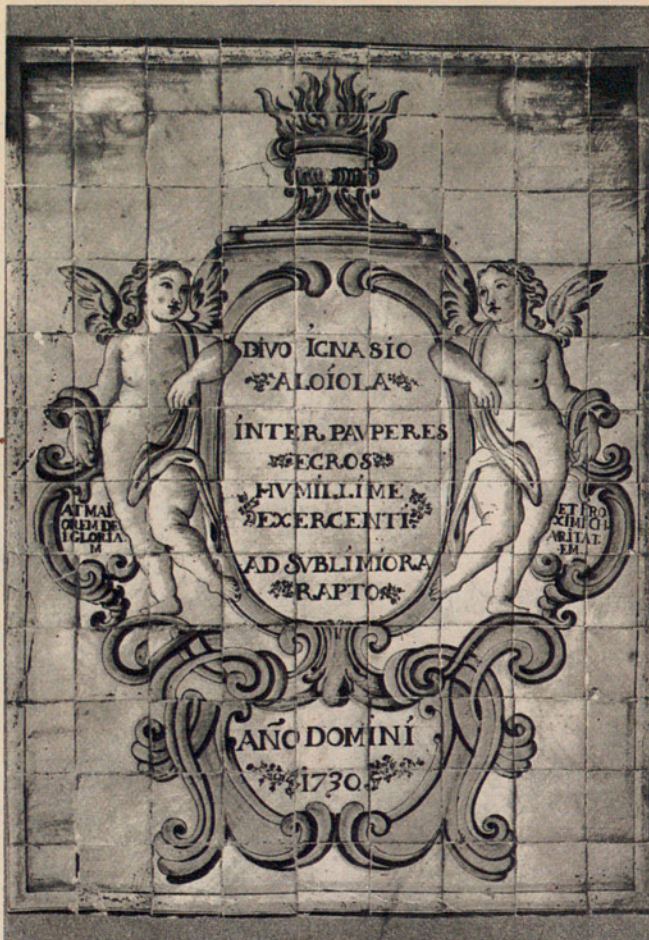 DIVO IGNASIO
ALOIOLA
INTER PAVPERES
ECROS
HVMILLIME
EXERCENTI
AD SVBLIMIORA
RAPTO
AT MAI
OREM DE
I GLORIA
M
ET PRO
XIMI CH
ARITAT
EM
AÑO DOMINI
1730